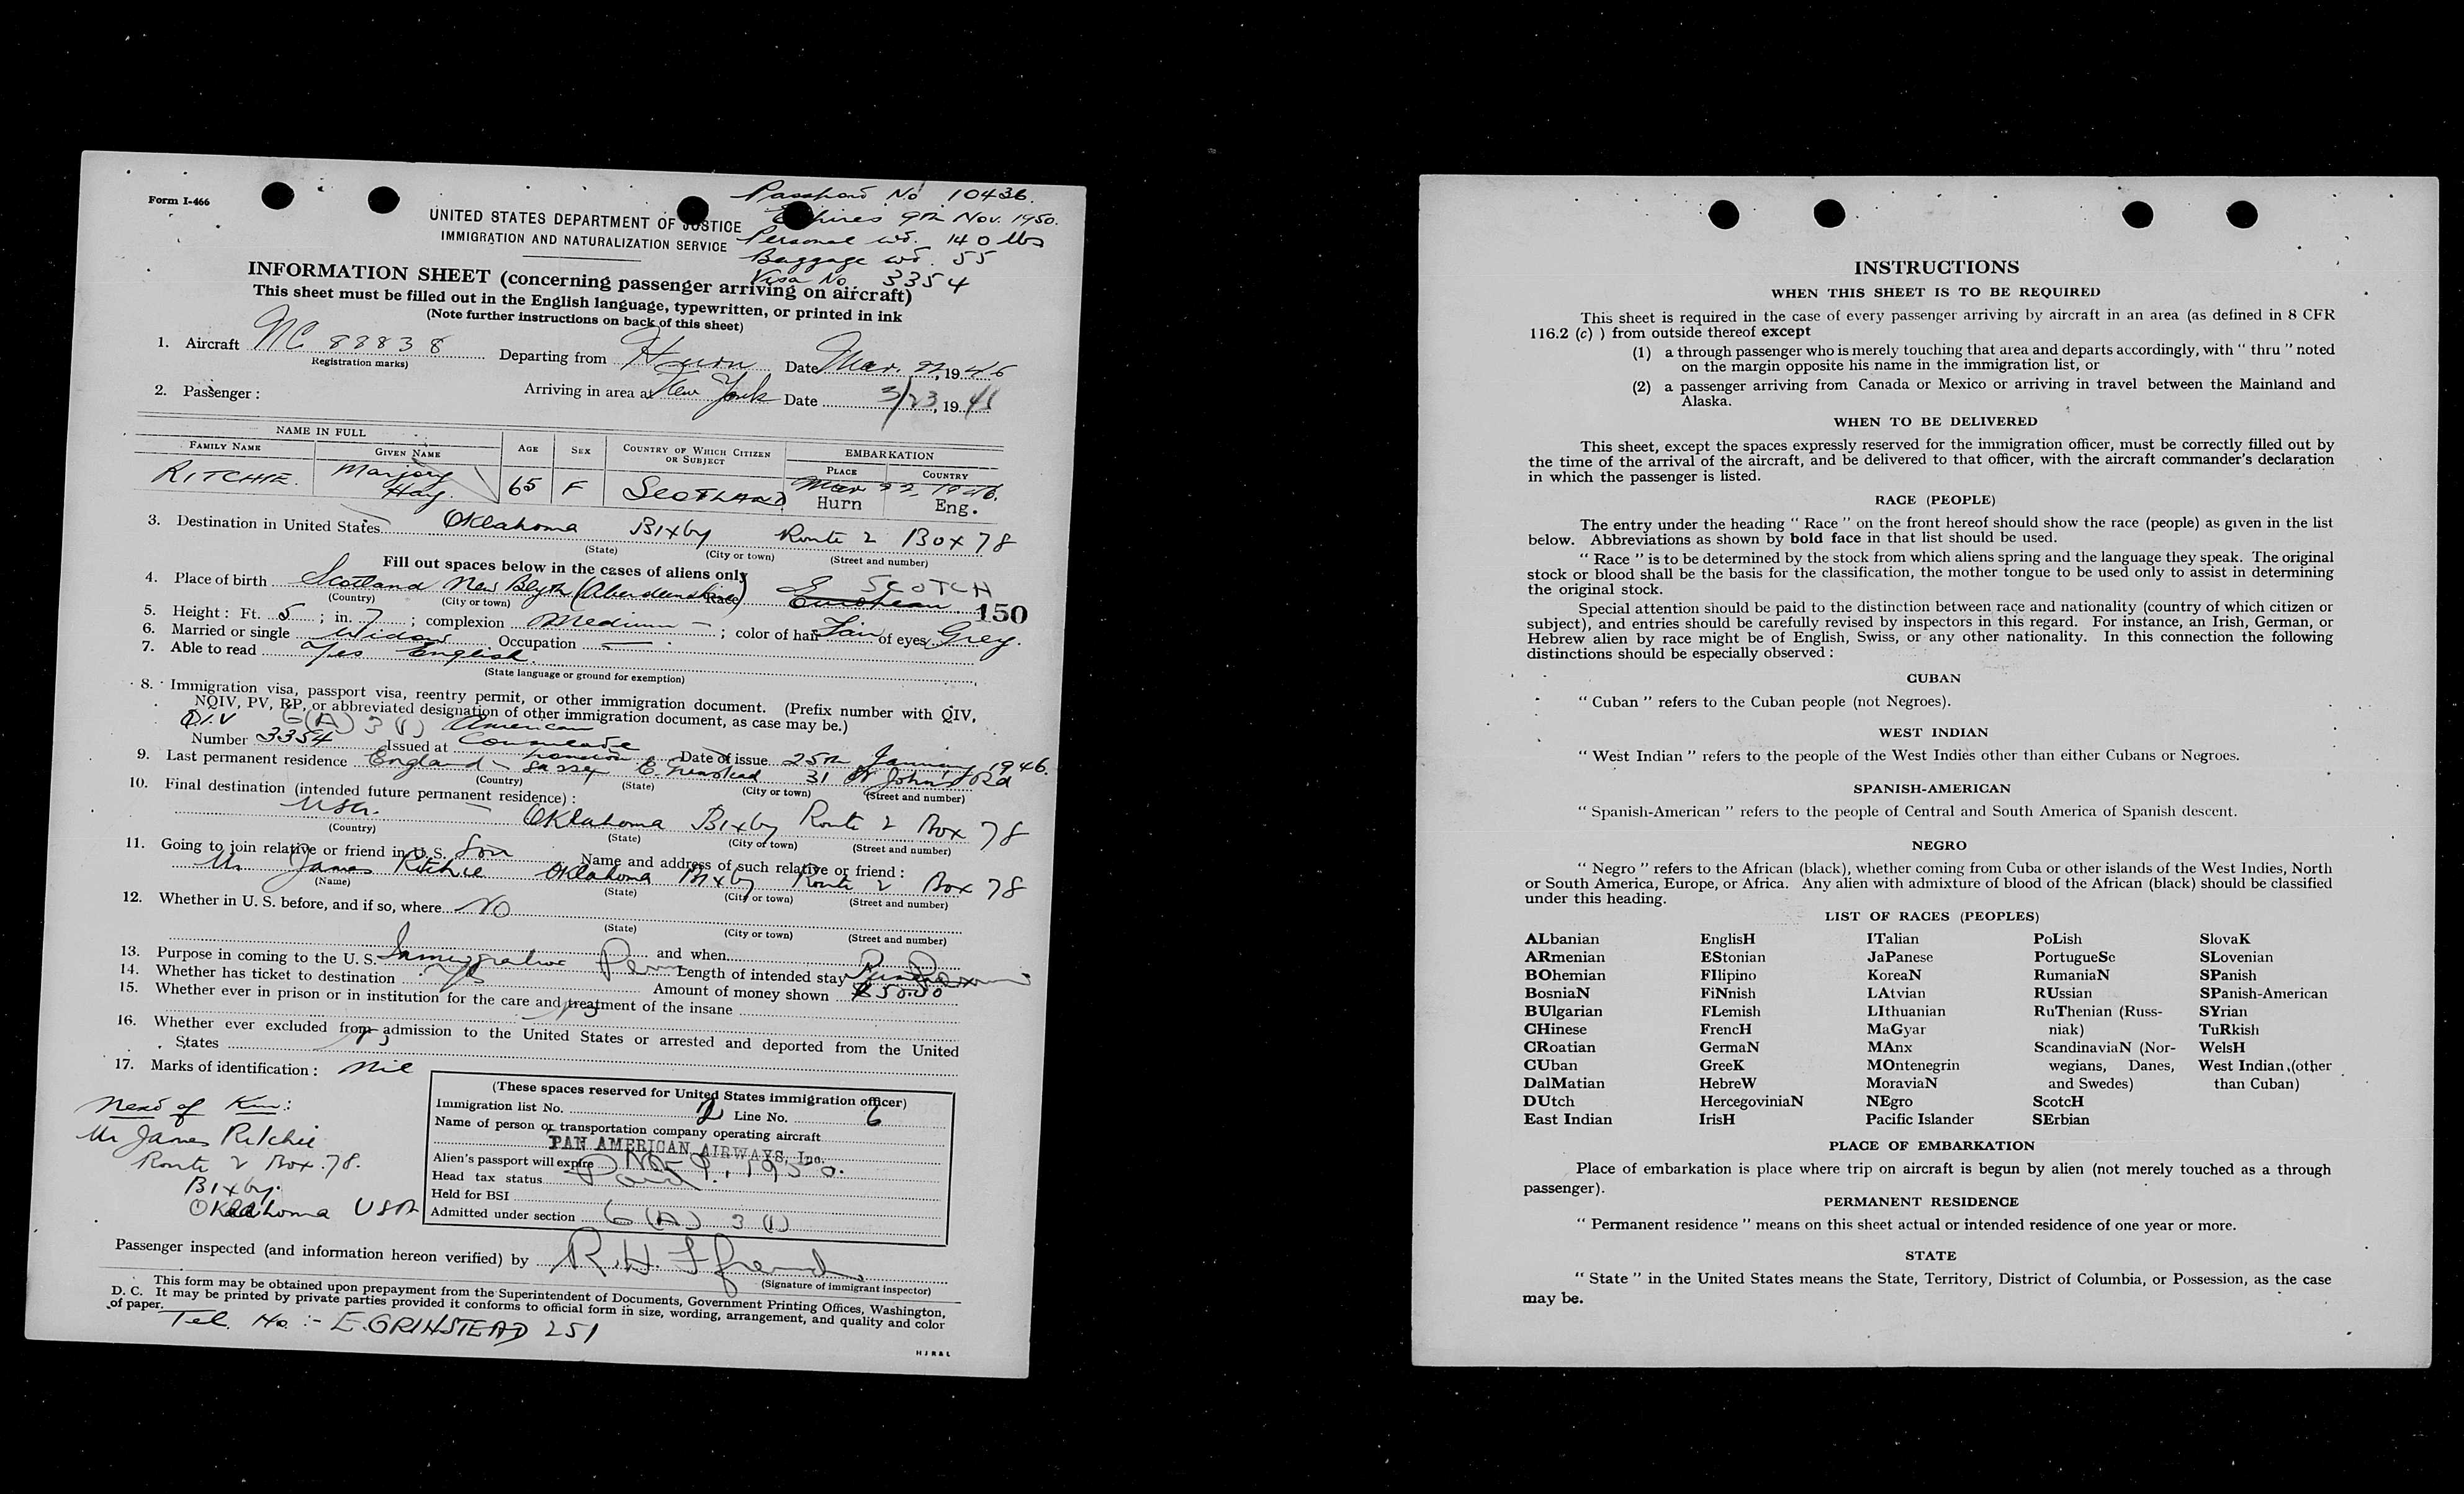 Form I-466
Passport No. 10436.
Expires 9th Nov. 1950.
UNITED STATES DEPARTMENT OF JUSTICE
IMMIGRATION AND NATURALIZATION SERVICE
Personal wt. 140 lbs
Baggage wt. 55
Visa No. 3354
INFORMATION SHEET (concerning passenger arriving on aircraft)
This sheet must be filled out in the English language, typewritten, or printed in ink
(Note further instructions on back of this sheet)
1. Aircraft NC 88838 Departing from Hurn Date Mar. 22, 1946
(Registration marks)
2. Passenger : Arriving in area at New York Date 3/23, 19
NAME IN FULL
FAMILY NAME GIVEN NAME AGE SEX COUNTRY OF WHICH CITIZEN OR SUBJECT EMBARKATION
PLACE COUNTRY
RITCHIE. Marjory Hay. 65 F SCOTLAND Mar 22, 1946.
Hurn Eng.
3. Destination in United States Oklahoma Bixby Route 2 Box 78
(State) (City or town) (Street and number)
Fill out spaces below in the cases of aliens only
SCOTCH
4. Place of birth Scotland New Blyth (Aberdeenshire) Race European 150
(Country) (City or town)
5. Height : Ft. 5 ; in. 7 ; complexion Medium – ; color of hair Fair of eyes Grey.
6. Married or single Widow Occupation —
7. Able to read Yes English.
(State language or ground for exemption)
8. Immigration visa, passport visa, reentry permit, or other immigration document. (Prefix number with QIV,
NQIV, PV, RP, or abbreviated designation of other immigration document, as case may be.)
Q.I.V 6(A) 3 (1) American
Number 3354 Issued at Consulate London Date of issue 25th January 1946.
9. Last permanent residence England – Sussex E. Grinstead 31 St John's Rd
(Country) (State) (City or town) (Street and number)
10. Final destination (intended future permanent residence) :
USA. – Oklahoma Bixby Route 2 Box 78
(Country) (State) (City or town) (Street and number)
11. Going to join relative or friend in U. S. Son Name and address of such relative or friend :
Mr James Ritchie Oklahoma Bixby Route 2 Box 78
(Name) (State) (City or town) (Street and number)
12. Whether in U. S. before, and if so, where No
(State) (City or town) (Street and number)
and when
13. Purpose in coming to the U. S. Immigration Perm Length of intended stay
14. Whether has ticket to destination Yes Amount of money shown 50.00
15. Whether ever in prison or in institution for the care and treatment of the insane
16. Whether ever excluded from admission to the United States or arrested and deported from the United
States
17. Marks of identification : Nil
Next of Kin:
Mr James Ritchie
Route 2 Box 78.
Bixby.
Oklahoma USA
(These spaces reserved for United States immigration officer)
Immigration list No. 2 Line No. 6
Name of person or transportation company operating aircraft
PAN AMERICAN AIRWAYS, Inc.
Alien's passport will expire Nov 9, 1950.
Head tax status Paid.
Held for BSI
Admitted under section 6 (A) 3 (1)
Passenger inspected (and information hereon verified) by R. H.
(Signature of immigrant inspector)
This form may be obtained upon prepayment from the Superintendent of Documents, Government Printing Offices, Washington,
D. C. It may be printed by private parties provided it conforms to official form in size, wording, arrangement, and quality and color
of paper.
Tel. No. :- E. GRINSTEAD 251
HJR&L
INSTRUCTIONS
WHEN THIS SHEET IS TO BE REQUIRED
This sheet is required in the case of every passenger arriving by aircraft in an area (as defined in 8 CFR
116.2 (c) ) from outside thereof except
(1) a through passenger who is merely touching that area and departs accordingly, with " thru " noted
on the margin opposite his name in the immigration list, or
(2) a passenger arriving from Canada or Mexico or arriving in travel between the Mainland and
Alaska.
WHEN TO BE DELIVERED
This sheet, except the spaces expressly reserved for the immigration officer, must be correctly filled out by
the time of the arrival of the aircraft, and be delivered to that officer, with the aircraft commander's declaration
in which the passenger is listed.
RACE (PEOPLE)
The entry under the heading " Race " on the front hereof should show the race (people) as given in the list
below. Abbreviations as shown by bold face in that list should be used.
" Race " is to be determined by the stock from which aliens spring and the language they speak. The original
stock or blood shall be the basis for the classification, the mother tongue to be used only to assist in determining
the original stock.
Special attention should be paid to the distinction between race and nationality (country of which citizen or
subject), and entries should be carefully revised by inspectors in this regard. For instance, an Irish, German, or
Hebrew alien by race might be of English, Swiss, or any other nationality. In this connection the following
distinctions should be especially observed :
CUBAN
" Cuban " refers to the Cuban people (not Negroes).
WEST INDIAN
" West Indian " refers to the people of the West Indies other than either Cubans or Negroes.
SPANISH-AMERICAN
" Spanish-American " refers to the people of Central and South America of Spanish descent.
NEGRO
" Negro " refers to the African (black), whether coming from Cuba or other islands of the West Indies, North
or South America, Europe, or Africa. Any alien with admixture of blood of the African (black) should be classified
under this heading.
LIST OF RACES (PEOPLES)
ALbanian EnglisH ITalian PoLish SlovaK
ARmenian EStonian JaPanese PortugueSe SLovenian
BOhemian FIlipino KoreaN RumaniaN SPanish
BosniaN FiNnish LAtvian RUssian SPanish-American
BUlgarian FLemish LIthuanian RuThenian (Russ- SYrian
CHinese FrencH MaGyar niak) TuRkish
CRoatian GermaN MAnx ScandinaviaN (Nor- WelsH
CUban GreeK MOntenegrin wegians, Danes, West Indian (other
DalMatian HebreW MoraviaN and Swedes) than Cuban)
DUtch HercegoviniaN NEgro ScotcH
East Indian IrisH Pacific Islander SErbian
PLACE OF EMBARKATION
Place of embarkation is place where trip on aircraft is begun by alien (not merely touched as a through
passenger).
PERMANENT RESIDENCE
" Permanent residence " means on this sheet actual or intended residence of one year or more.
STATE
" State " in the United States means the State, Territory, District of Columbia, or Possession, as the case
may be.